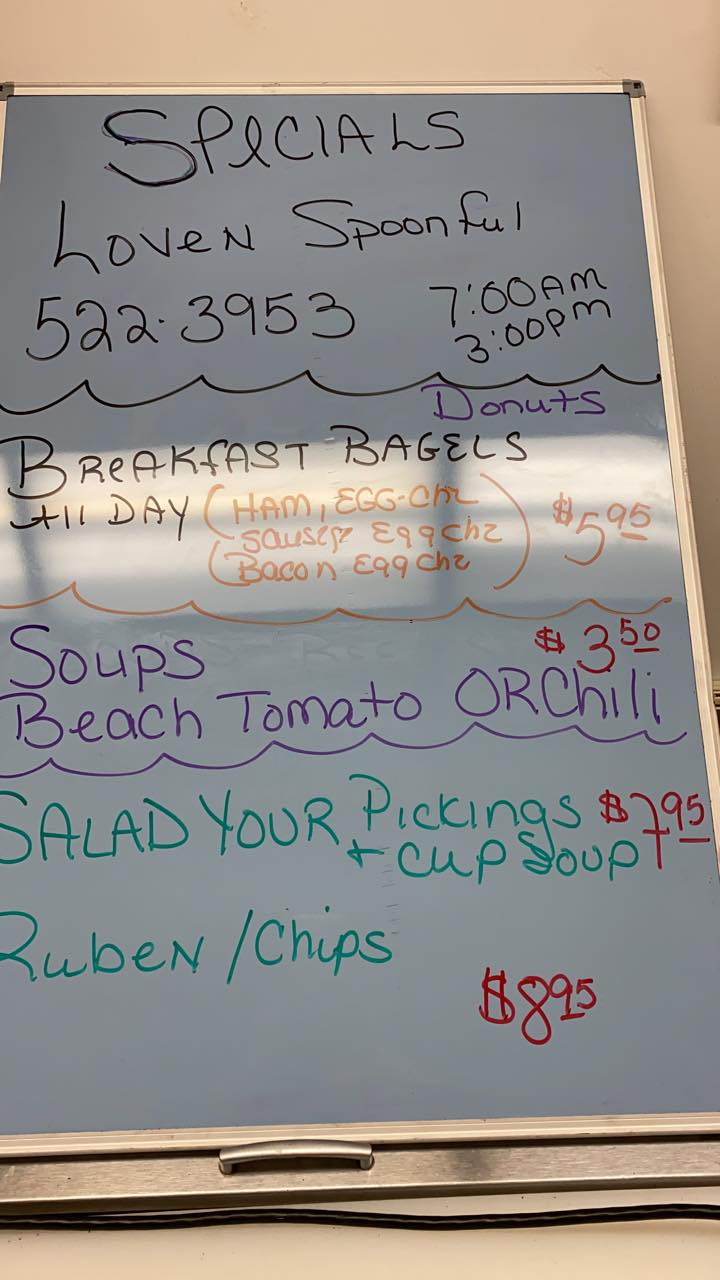 SPeCIALS
Loven Spoonful
522-3953 7:00AM
3:00pm
Donuts
BReAKfAST BAGELS
All DAY (HAM, EGG-Chz
Sausep Egg Chz $5.95
(Bacon Egg Chz)
Soups $3.50
Beach Tomato OR Chili
SALAD YOUR Pickings $7.95
+ CUP SOUP
RubeN / Chips
$8.95